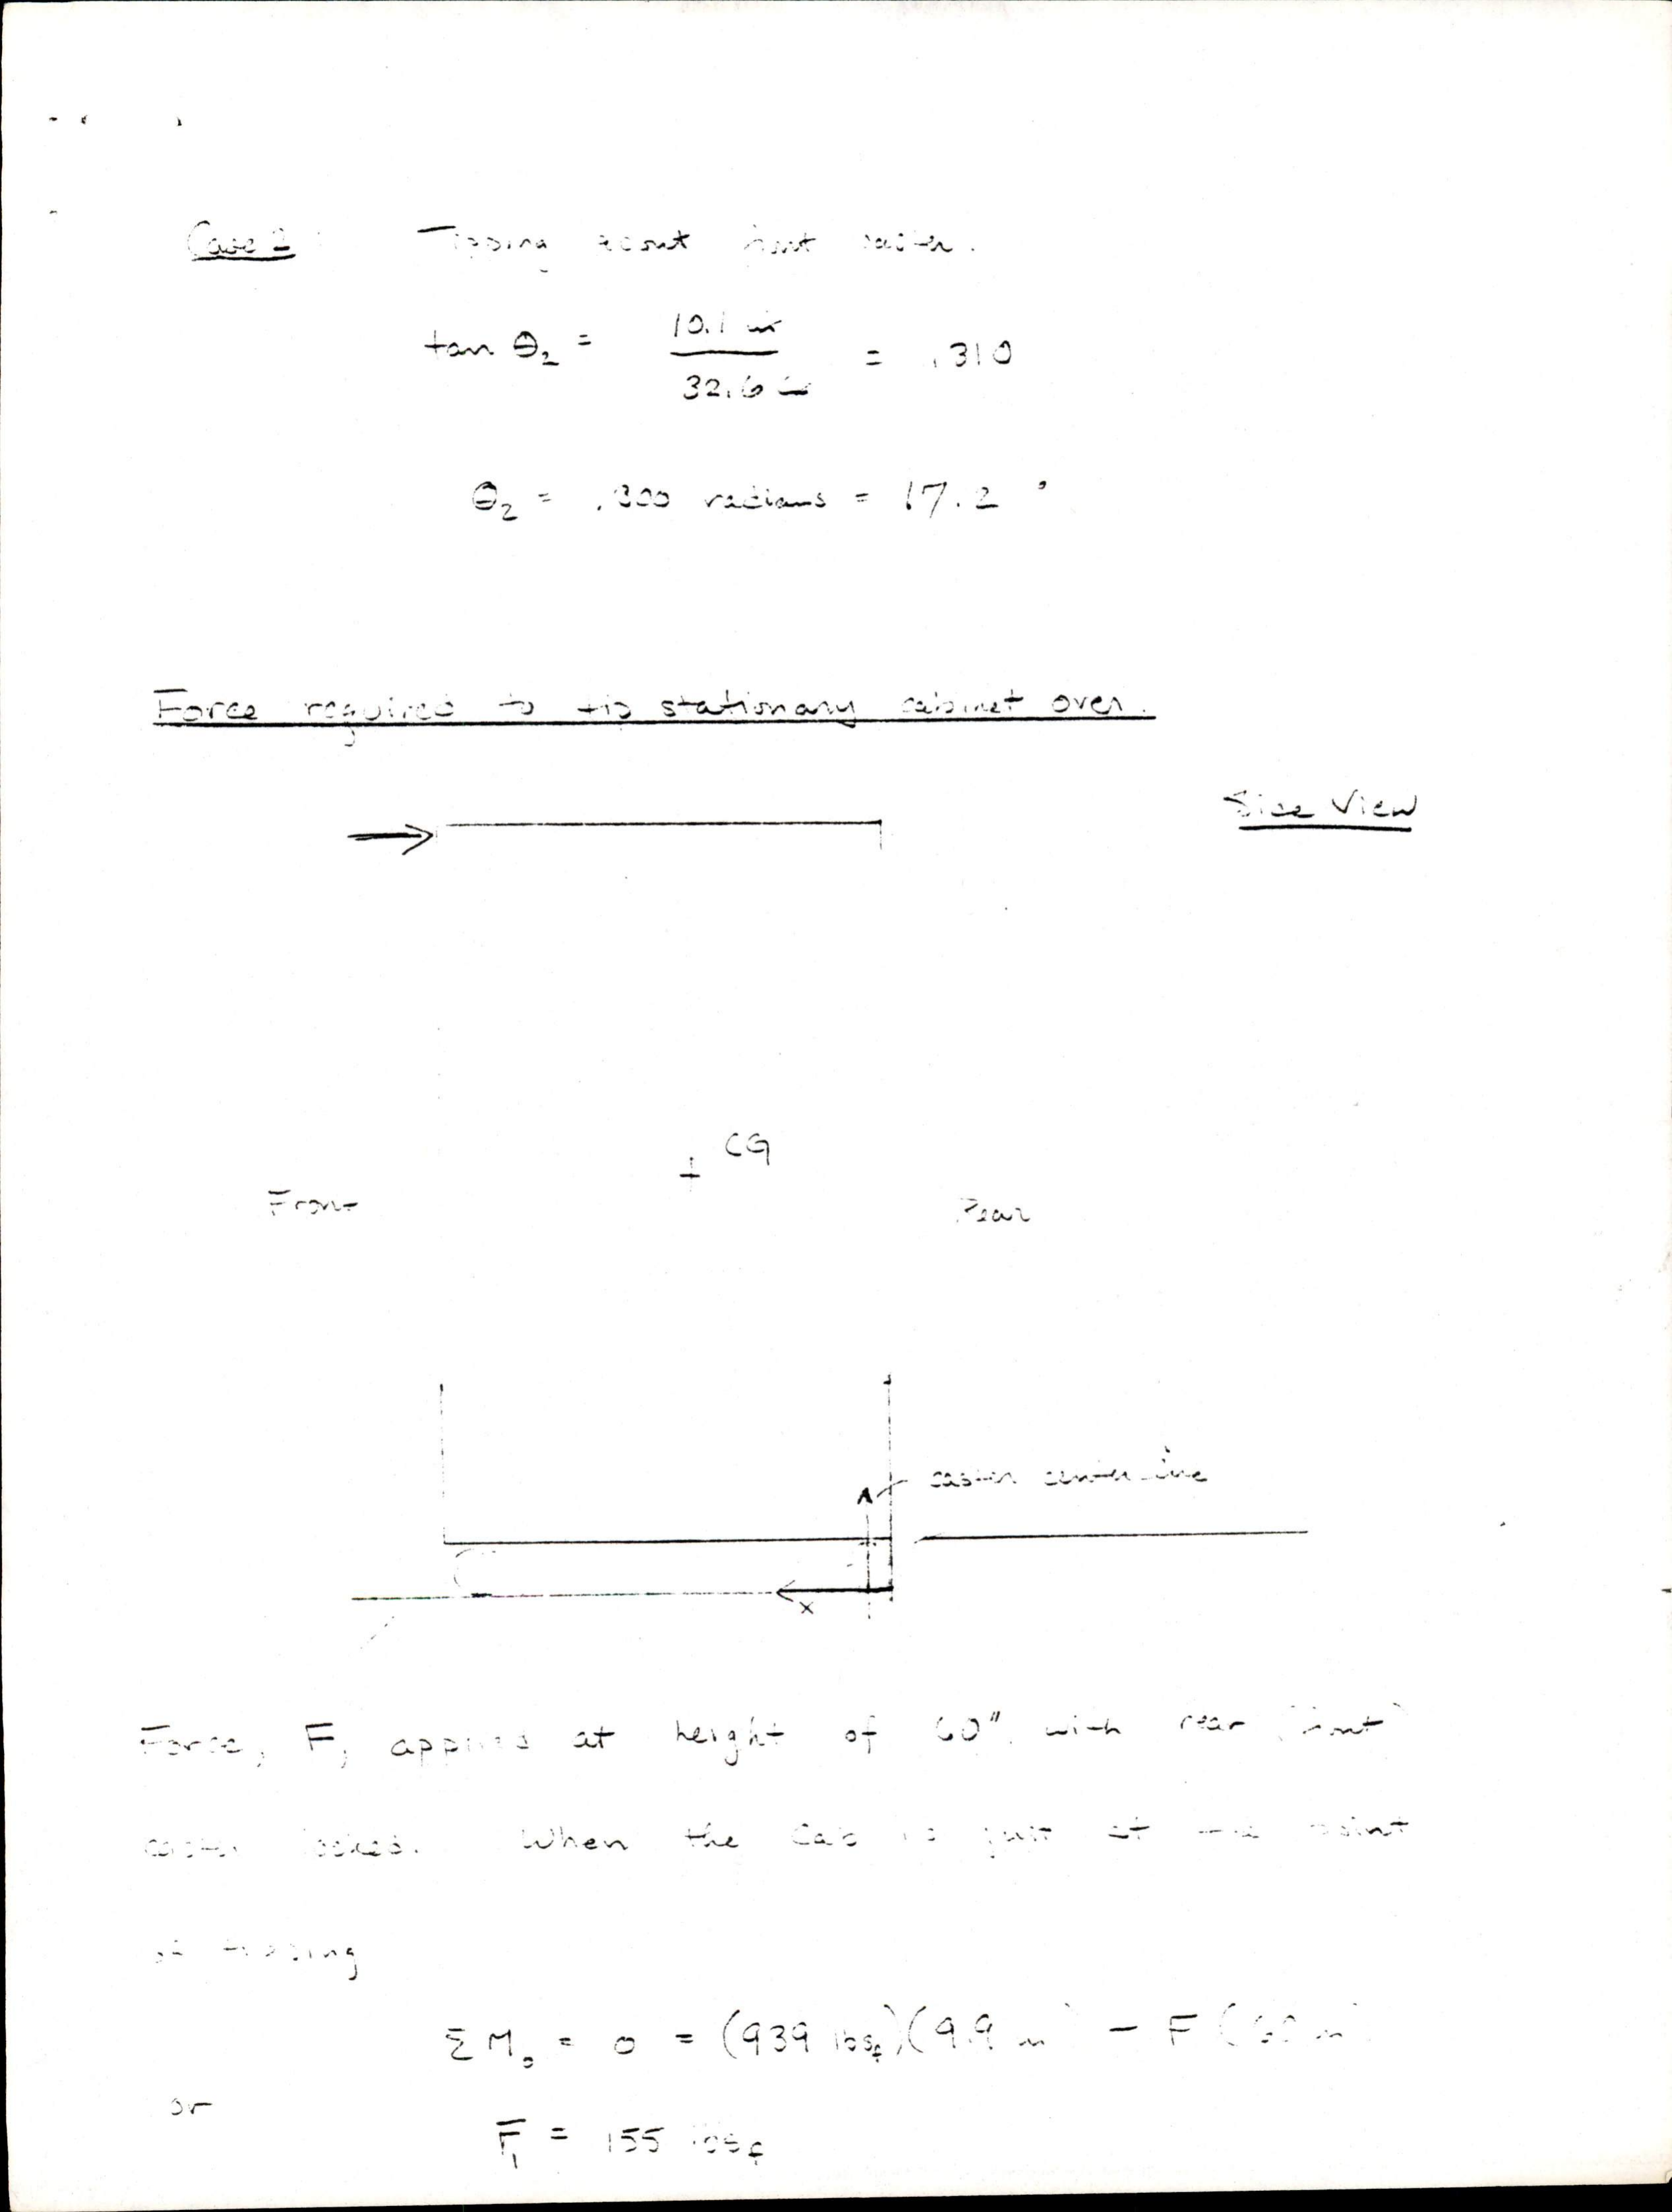 Case 2: Tipping about front caster.
tan θ₂ = 10.1 in / 32.6 in = .310
θ₂ = .300 radians = 17.2 °
Force required to tip stationary cabinet over.
Side View
CG
Front
Rear
caster centerline
x
Force, F, applied at height of 60" with rear (front)
caster locked. When the cab is just at the point
of tipping
ΣM₀ = 0 = (939 lbsf)(9.9 in) - F (60 in)
or
F₁ = 155 lbsf